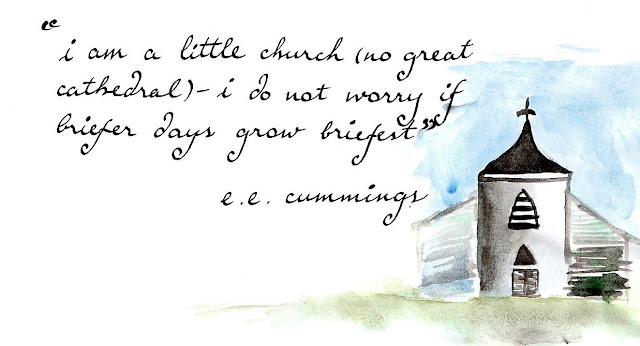 “i am a little church (no great
cathedral)- i do not worry if
briefer days grow briefest”
e.e. cummings